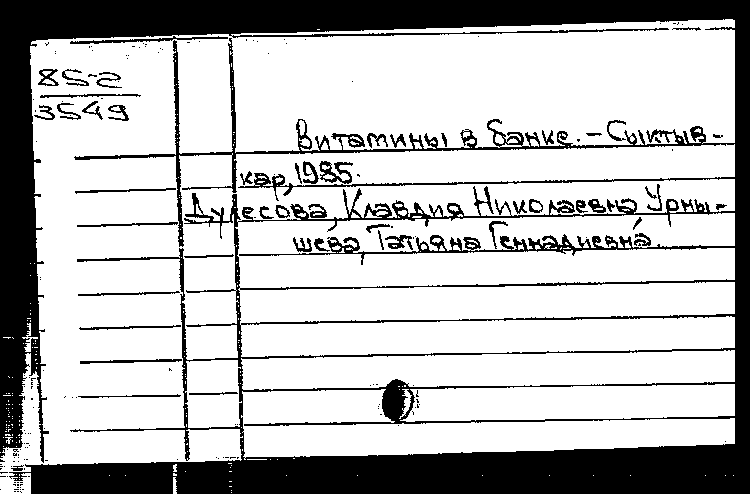 85-2
3549
Витамины в банке. - Сыктыв-
кар, 1985.
Дулесова, Клавдия Николаевна, Урны-
шева, Татьяна Геннадиевна.